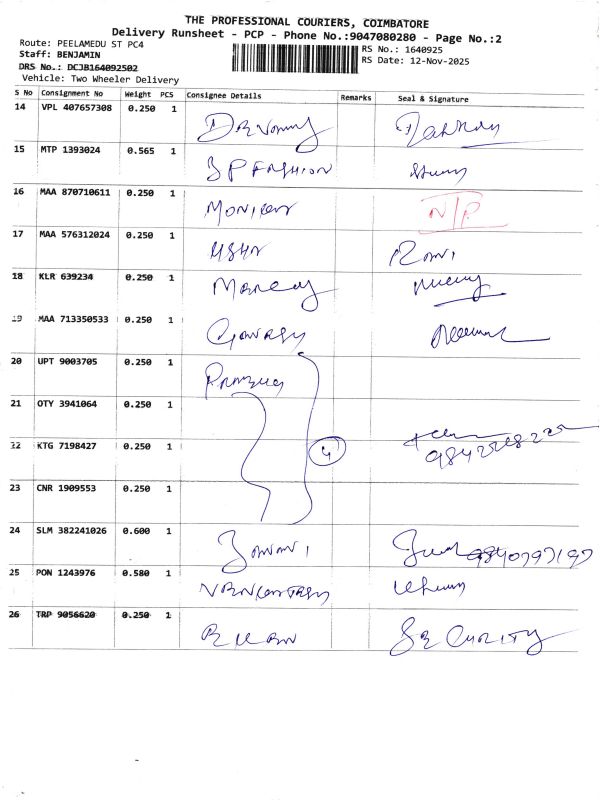 THE PROFESSIONAL COURIERS, COIMBATORE
Delivery Runsheet - PCP - Phone No.:9047080280 - Page No.:2
Route: PEELAMEDU ST PC4
Staff: BENJAMIN
DRS No.: DCJB164092502
Vehicle: Two Wheeler Delivery
RS No.: 1640925
RS Date: 12-Nov-2025
S No Consignment No Weight PCS Consignee Details Remarks Seal & Signature
14 VPL 407657308 0.250 1
15 MTP 1393024 0.565 1 SP FASHION
16 MAA 870710611 0.250 1 N/P
17 MAA 576312024 0.250 1 USHA
18 KLR 639234 0.250 1
19 MAA 713350533 0.250 1
20 UPT 9003705 0.250 1
21 OTY 3941064 0.250 1
22 KTG 7198427 0.250 1 4
23 CNR 1909553 0.250 1
24 SLM 382241026 0.600 1
25 PON 1243976 0.580 1
26 TRP 9056620 0.250 1 SECURITY